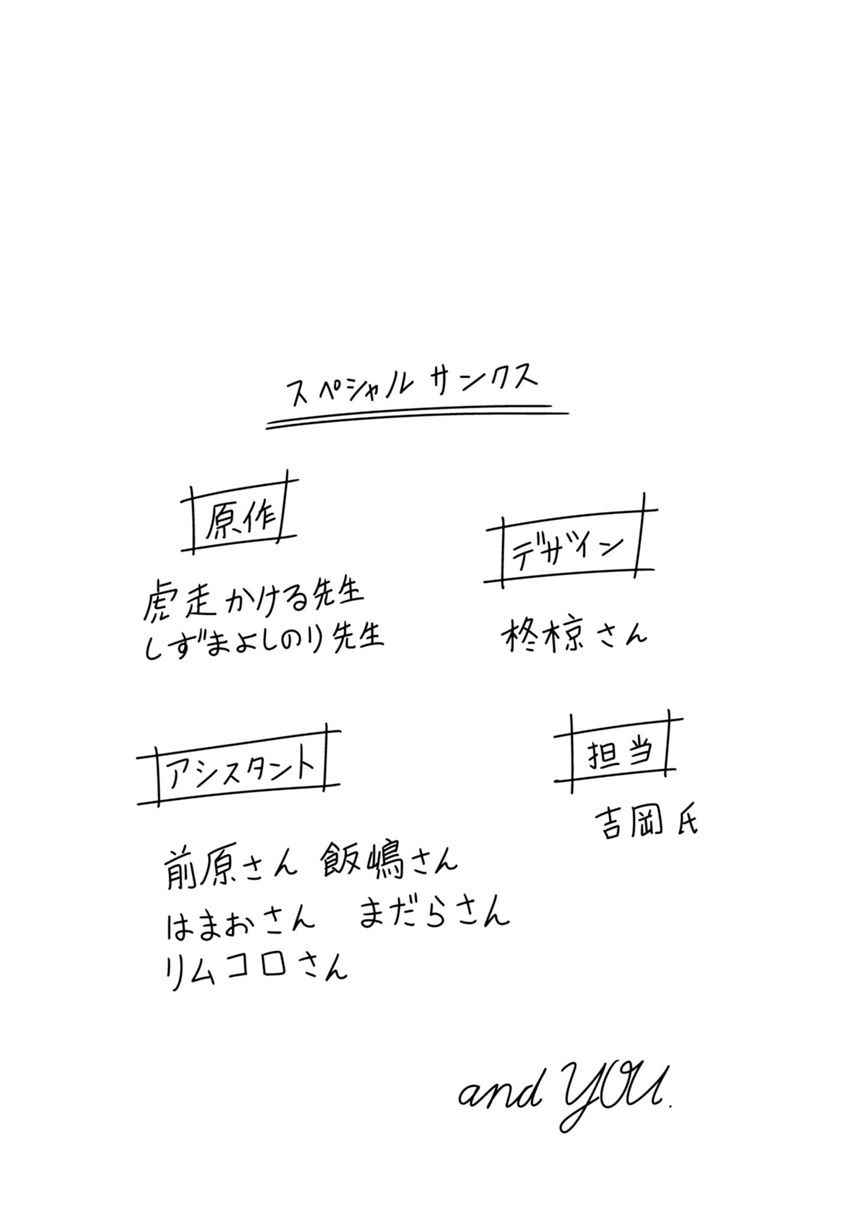 スペシャルサンクス
原作
虎走かける先生
しずまよしのり先生
デザイン
柊椋さん
アシスタント
前原さん 飯嶋さん
はまおさん まだらさん
リムコロさん
担当
吉岡氏
and YOU.